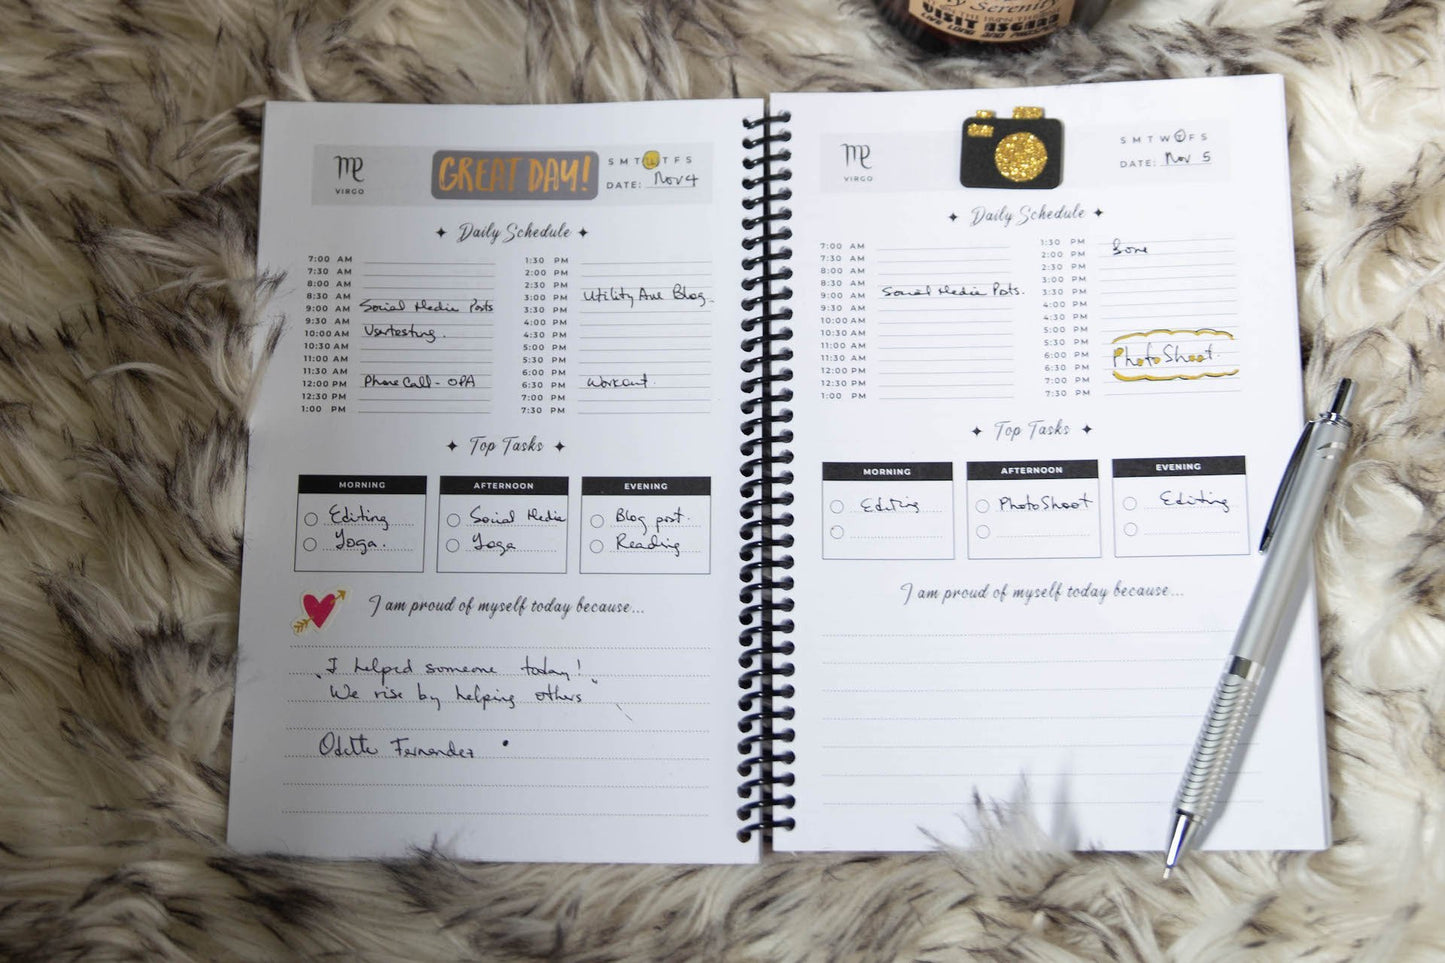 y Serenity
VISIT ASGARD
VIRGO
GREAT DAY!
S M T W T F S
DATE: Nov 4
Daily Schedule
7:00 AM
7:30 AM
8:00 AM
8:30 AM
9:00 AM Social Media Posts
9:30 AM
10:00 AM Usertesting.
10:30 AM
11:00 AM
11:30 AM
12:00 PM Phone Call - OPA
12:30 PM
1:00 PM
1:30 PM
2:00 PM
2:30 PM
3:00 PM Utility Ave Blog.
3:30 PM
4:00 PM
4:30 PM
5:00 PM
5:30 PM
6:00 PM
6:30 PM Workout.
7:00 PM
7:30 PM
Top Tasks
MORNING
Editing
Yoga.
AFTERNOON
Social Media
Yoga
EVENING
Blog post.
Reading
I am proud of myself today because...
"I helped someone today!
We rise by helping others"
Odette Fernandez
VIRGO
S M T W T F S
DATE: Nov 5
Daily Schedule
7:00 AM
7:30 AM
8:00 AM
8:30 AM
9:00 AM Social Media Posts.
9:30 AM
10:00 AM
10:30 AM
11:00 AM
11:30 AM
12:00 PM
12:30 PM
1:00 PM
1:30 PM
2:00 PM
2:30 PM
3:00 PM
3:30 PM
4:00 PM
4:30 PM
5:00 PM
5:30 PM
6:00 PM PhotoShoot.
6:30 PM
7:00 PM
7:30 PM
Top Tasks
MORNING
Editing
AFTERNOON
PhotoShoot
EVENING
Editing
I am proud of myself today because...